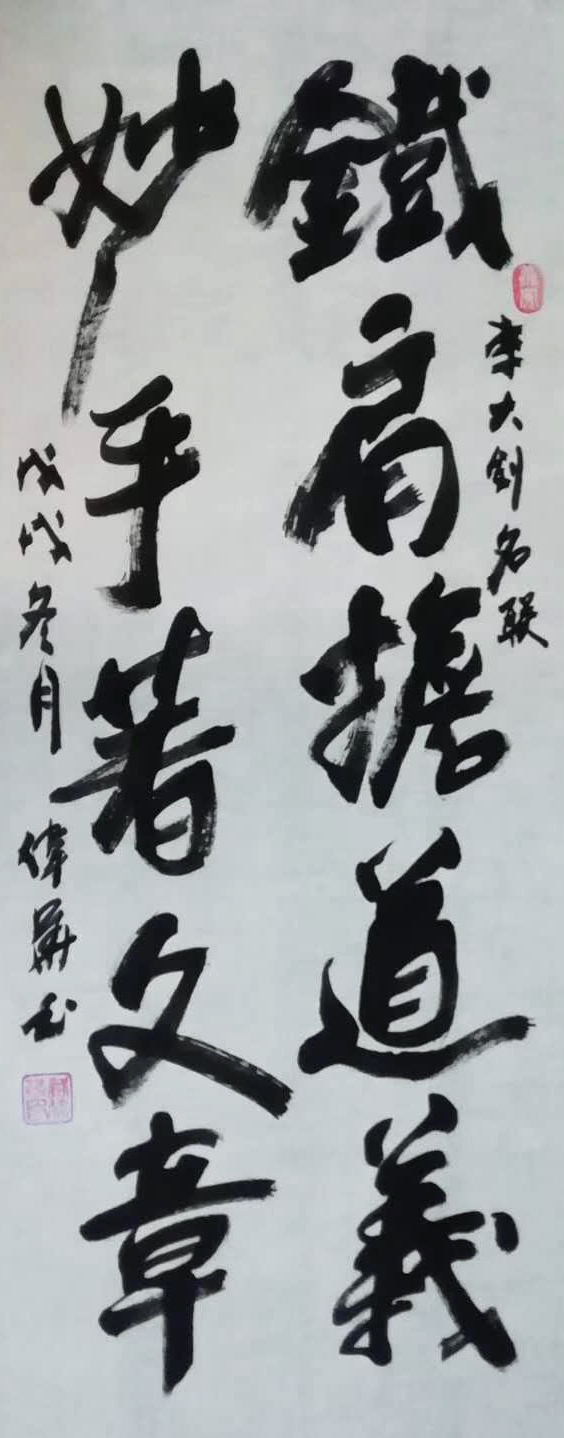 李大釗名联
鐵肩擔道義
妙手著文章
戊戌冬月 偉